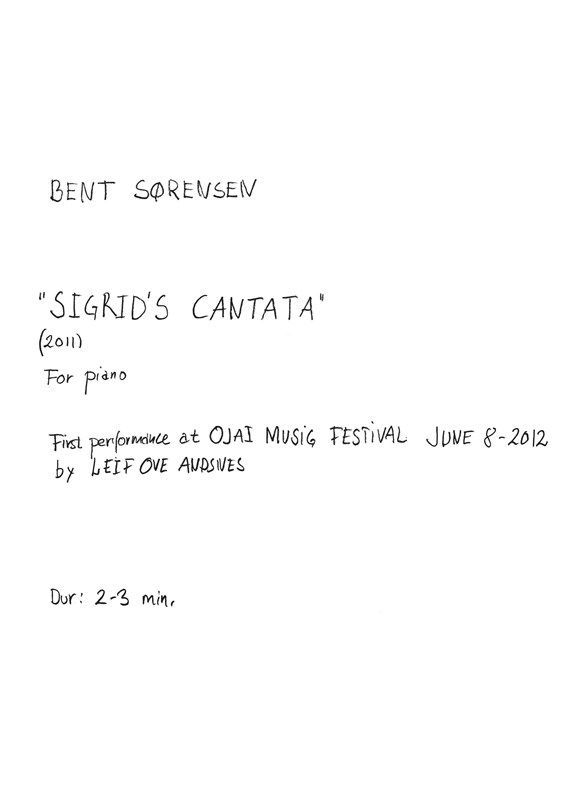 BENT SØRENSEN
"SIGRID'S CANTATA"
(2011)
For piano
First performance at OJAI MUSIG FESTIVAL JUNE 8-2012
by LEIF OVE ANDSNES
Dur: 2-3 min.